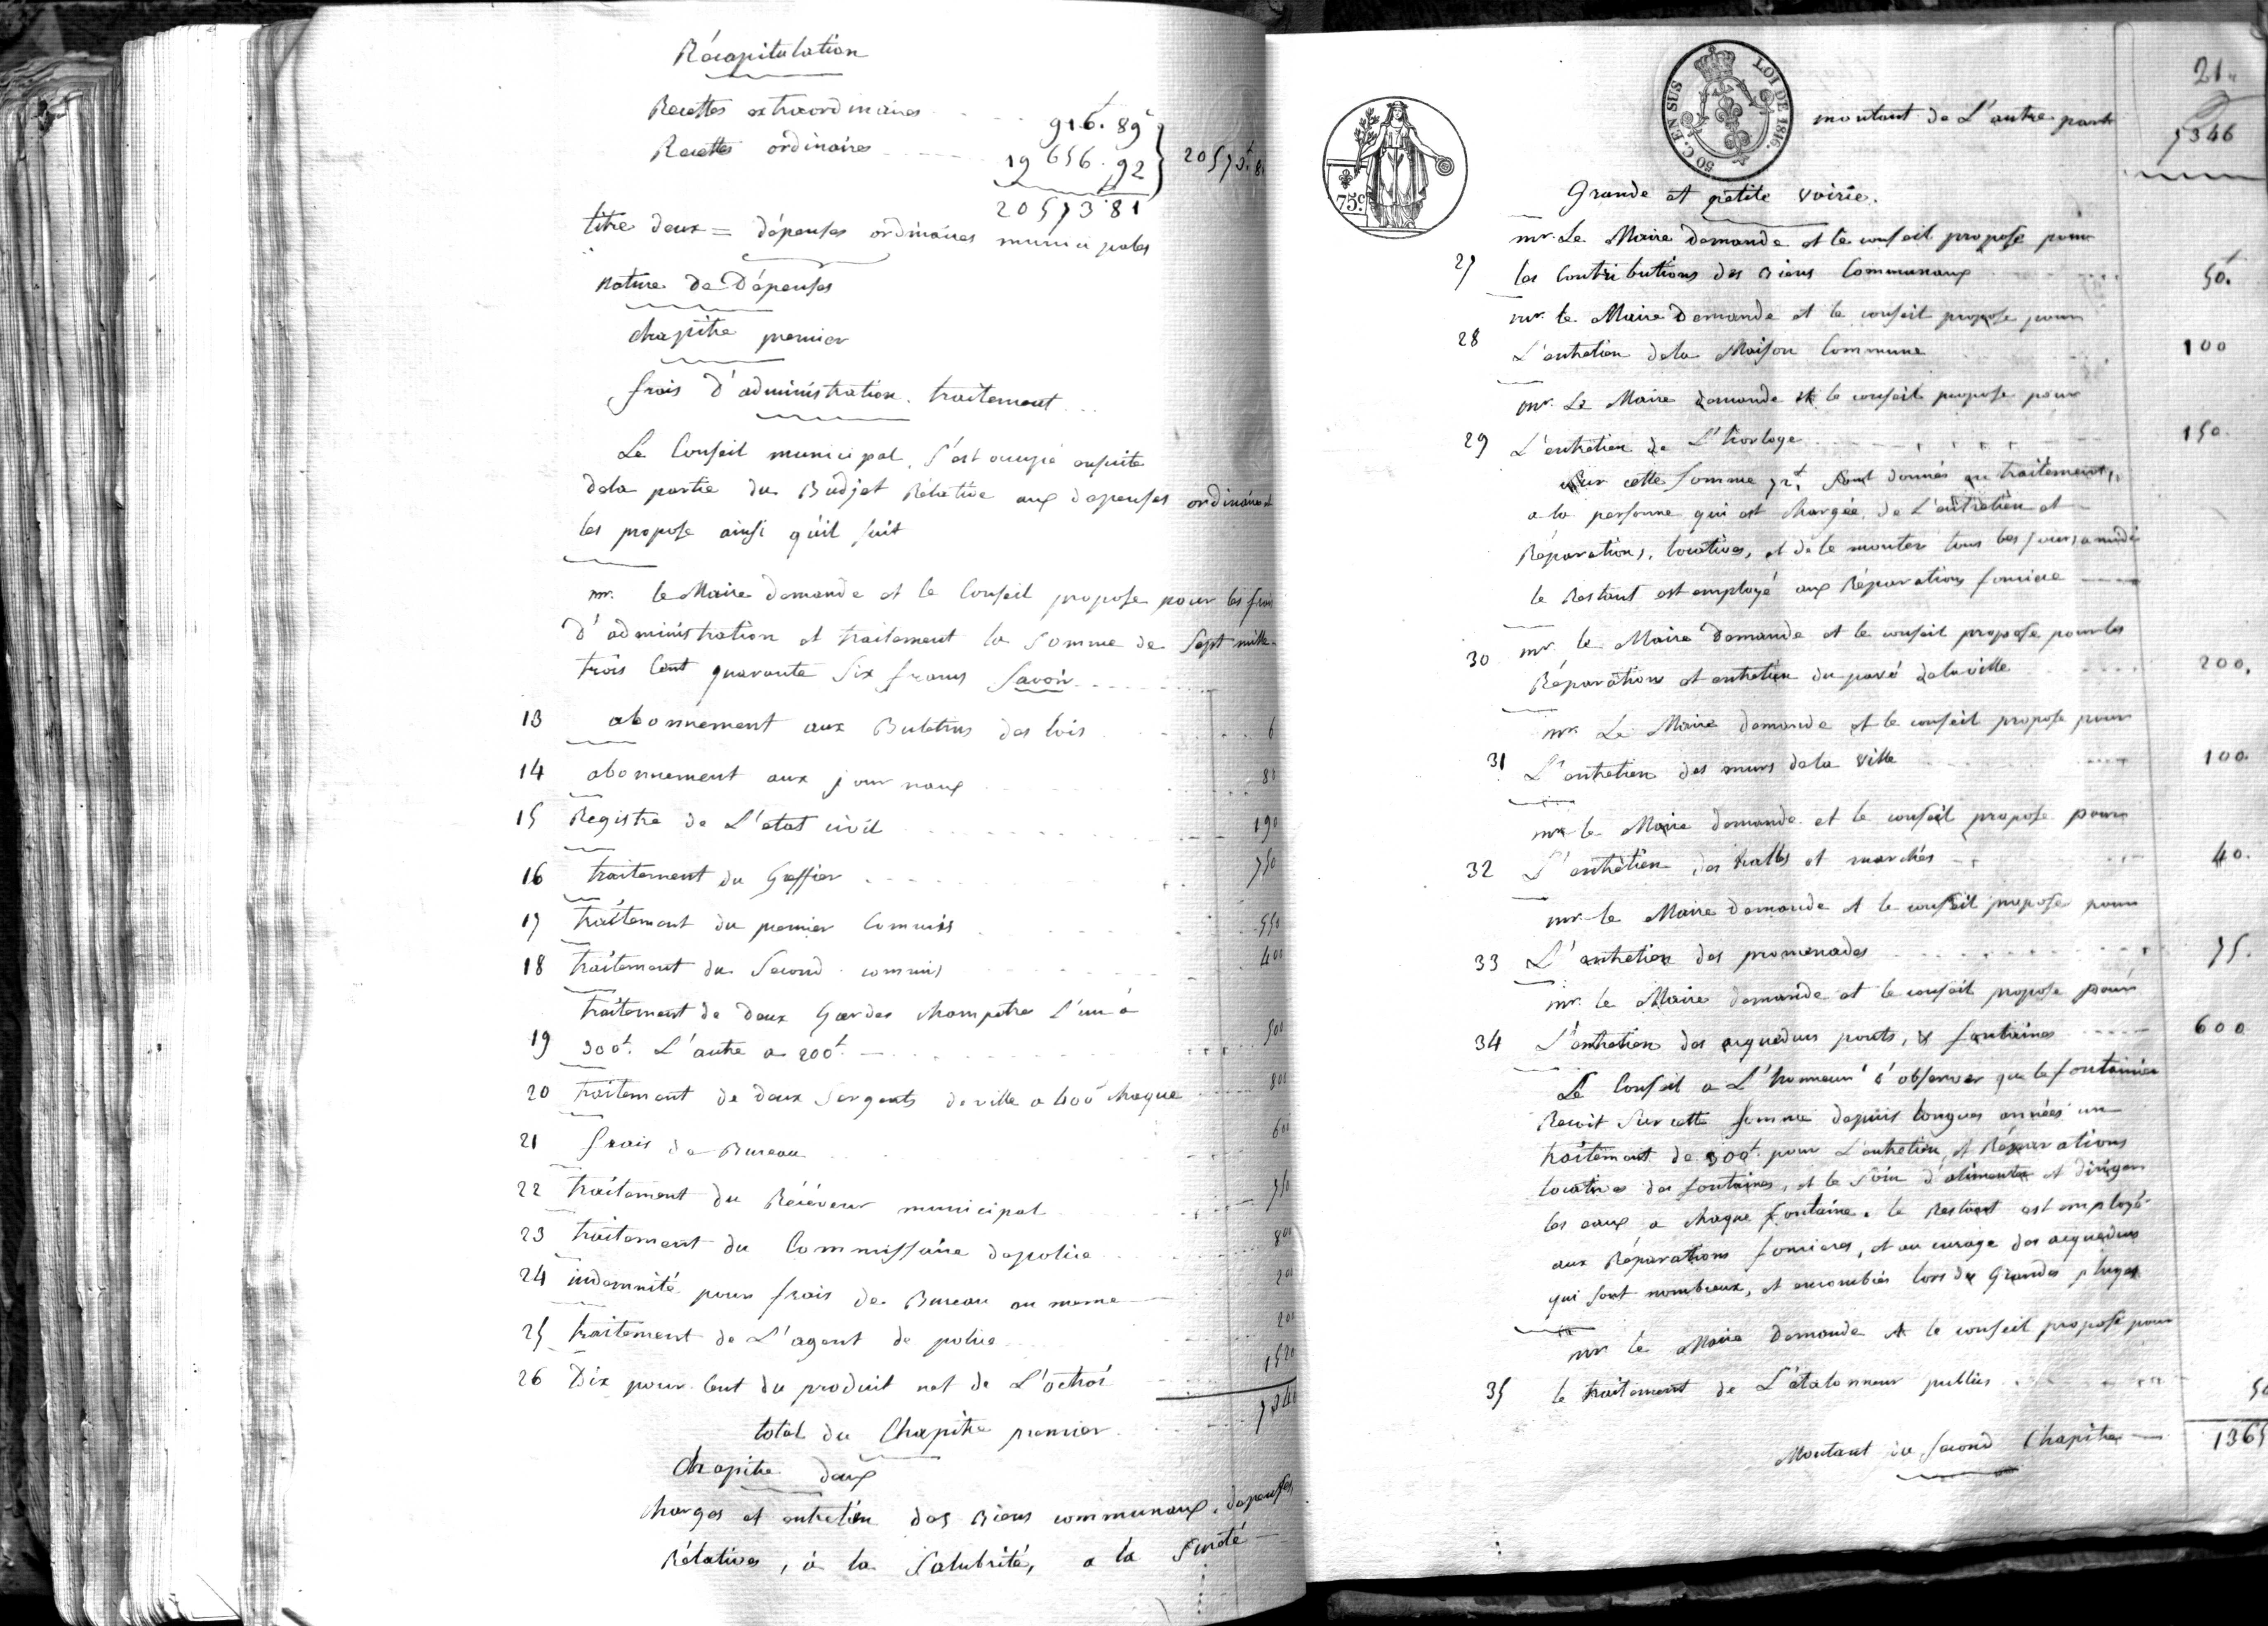 Récapitulation
Recettes extraordinaires 916. 89
Recettes ordinaires 19 656. 92 } 20573.
20573 81
titre deux = dépenses ordinaires municipales
nature de Dépenses
chapitre premier
frais d'administration. traitement
Le Conseil municipal, s'est occupé ensuite
dela partie du Budjet Rélative aux depenses ordinaires
les propose ainsi qu'il suit
mr. le Maire demande et le Conseil propose pour les frais
D'administration et traitement la somme de Sept mille
trois Cent quarante Six francs Savoir
13 abonnement aux Buletins des lois 6
14 abonnement aux journaux 80
15 Registre de L'etat civil 190
16 traitement du Greffier 750
17 traitement du premier Commis 550
18 traitement du Second commis 400
traitement de deux Gardes champetre L'un à
19 300f. L'autre a 200f. 500
20 traitement de deux Sergents de ville a 400f chaque 800
21 frais de Bureau 600
22 traitement du Récéveur municipal 750
23 traitement du Commissaire depolice 800
24 indemnité pour frais de Bureau au meme 200
25 traitement de L'agent de police 200
26 Dix pour Cent du produit net de L'octroi 1520
total du Chapitre premier 7346
Chapitre deux
charges et entretien des Biens communaux, depenses,
Rélatives, à la Salubrité, a la Sureté
21
50 C. EN SUS LOI DE 1816.
75 c.
montant de L'autre part 7346
Grande et petite voirie.
mr. Le Maire demande et le conseil propose pour
27 les Contributions des Biens Communaux 50f.
mr. le Maire Demande et le conseil propose pour
28 L'entretien dela Maison Commune 100
mr. Le Maire demande et le conseil propose pour
29 L'entretien de L'horloge 150.
Sur cette Somme 72f. Sont donnés en traitement,
a la personne qui est chargée de L'entretien et
Réparations, locatives, et de le monter tous les jours, a midi
le Restant est employé aux Réparations fonciere
mr. le Maire Demande et le conseil propose pour les
30 Réparations et entretien du pavé delaville 200.
mr. Le Maire demande et le conseil propose pour
31 L'entretien des murs dela ville 100.
mr. le Maire demande et le conseil propose pour
32 L'entretien des halles et marchés 40.
mr. le Maire demande et le conseil propose pour
33 L'entretien des promenades 75.
mr. le Maire demande et le conseil propose pour
34 L'entretien des aqueducs ponts, & fontaines 600
Le Conseil a L'honneur d'observer que le fontainier
Recoit Sur cette somme depuis longues années un
traitement de 300f. pour L'entretien, et Réparations
locatives des fontaines, et le Soin d'alimenter et diriger
les eaux a chaque fontaine. le Restant est employé
aux Réparations foncieres, et au curage des aqueducs
qui sont nombreux, et encombrés lors des Grandes pluyes
mr. le Maire Demande et le conseil propose pour
35 le traitement de L'étalonneur publics 50
Montant du second Chapitre 1365